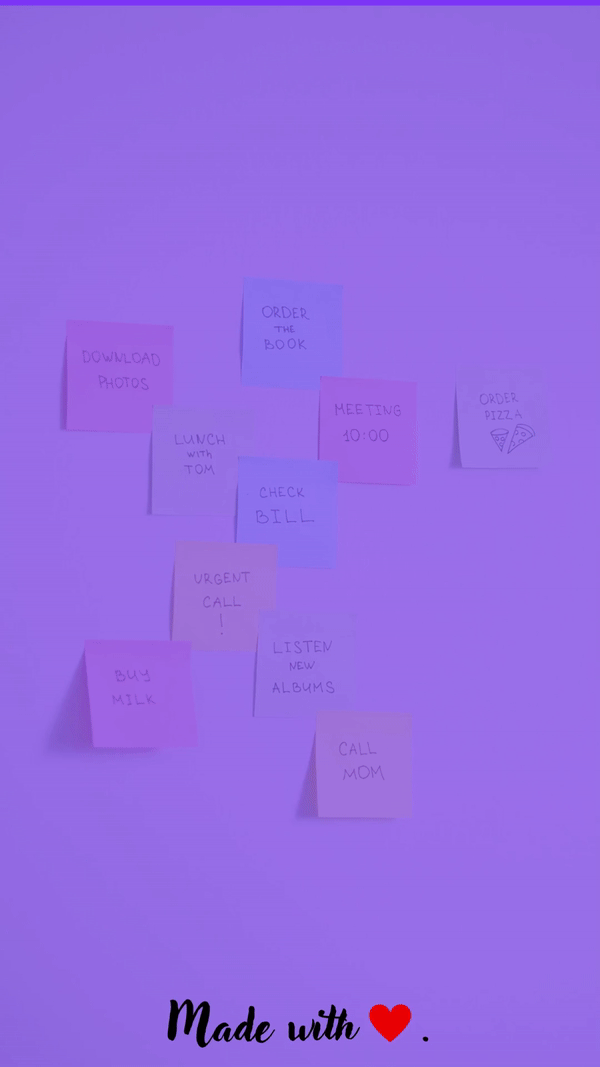 ORDER
THE
BOOK
DOWNLOAD
PHOTOS
MEETING
10:00
ORDER
PIZZA
LUNCH
WITH
TOM
CHECK
BILL
URGENT
CALL
!
LISTEN
NEW
ALBUMS
BUY
MILK
CALL
MOM
Made with ❤.